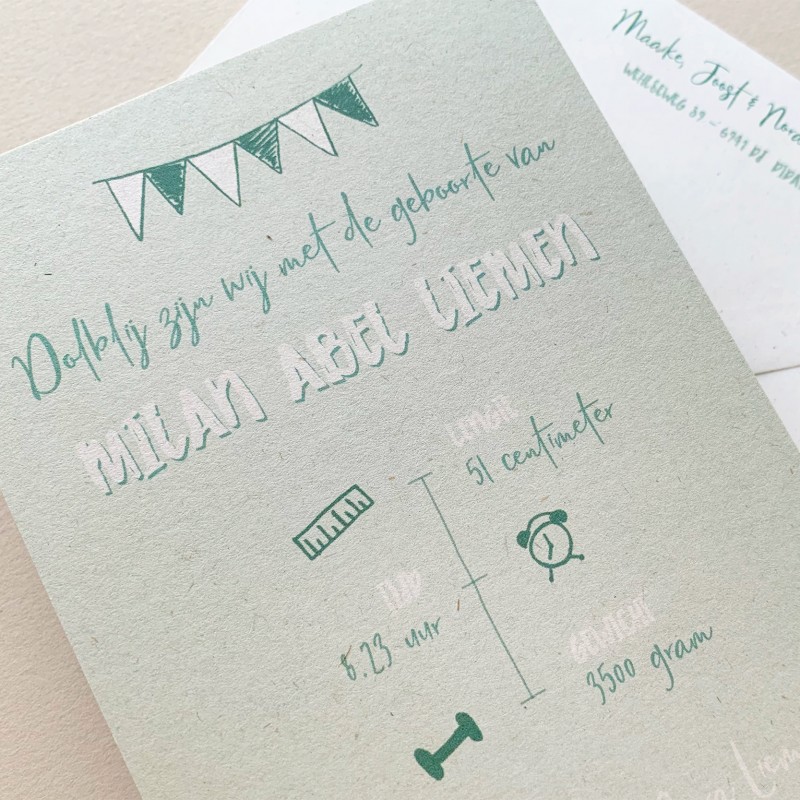 Maaike, Joost & Nore
Dolblij zijn wij met de geboorte van
MILAN ABEL LIEMEN
LENGTE
51 centimeter
TIJD
6.23 uur
GEWICHT
3500 gram
Liem